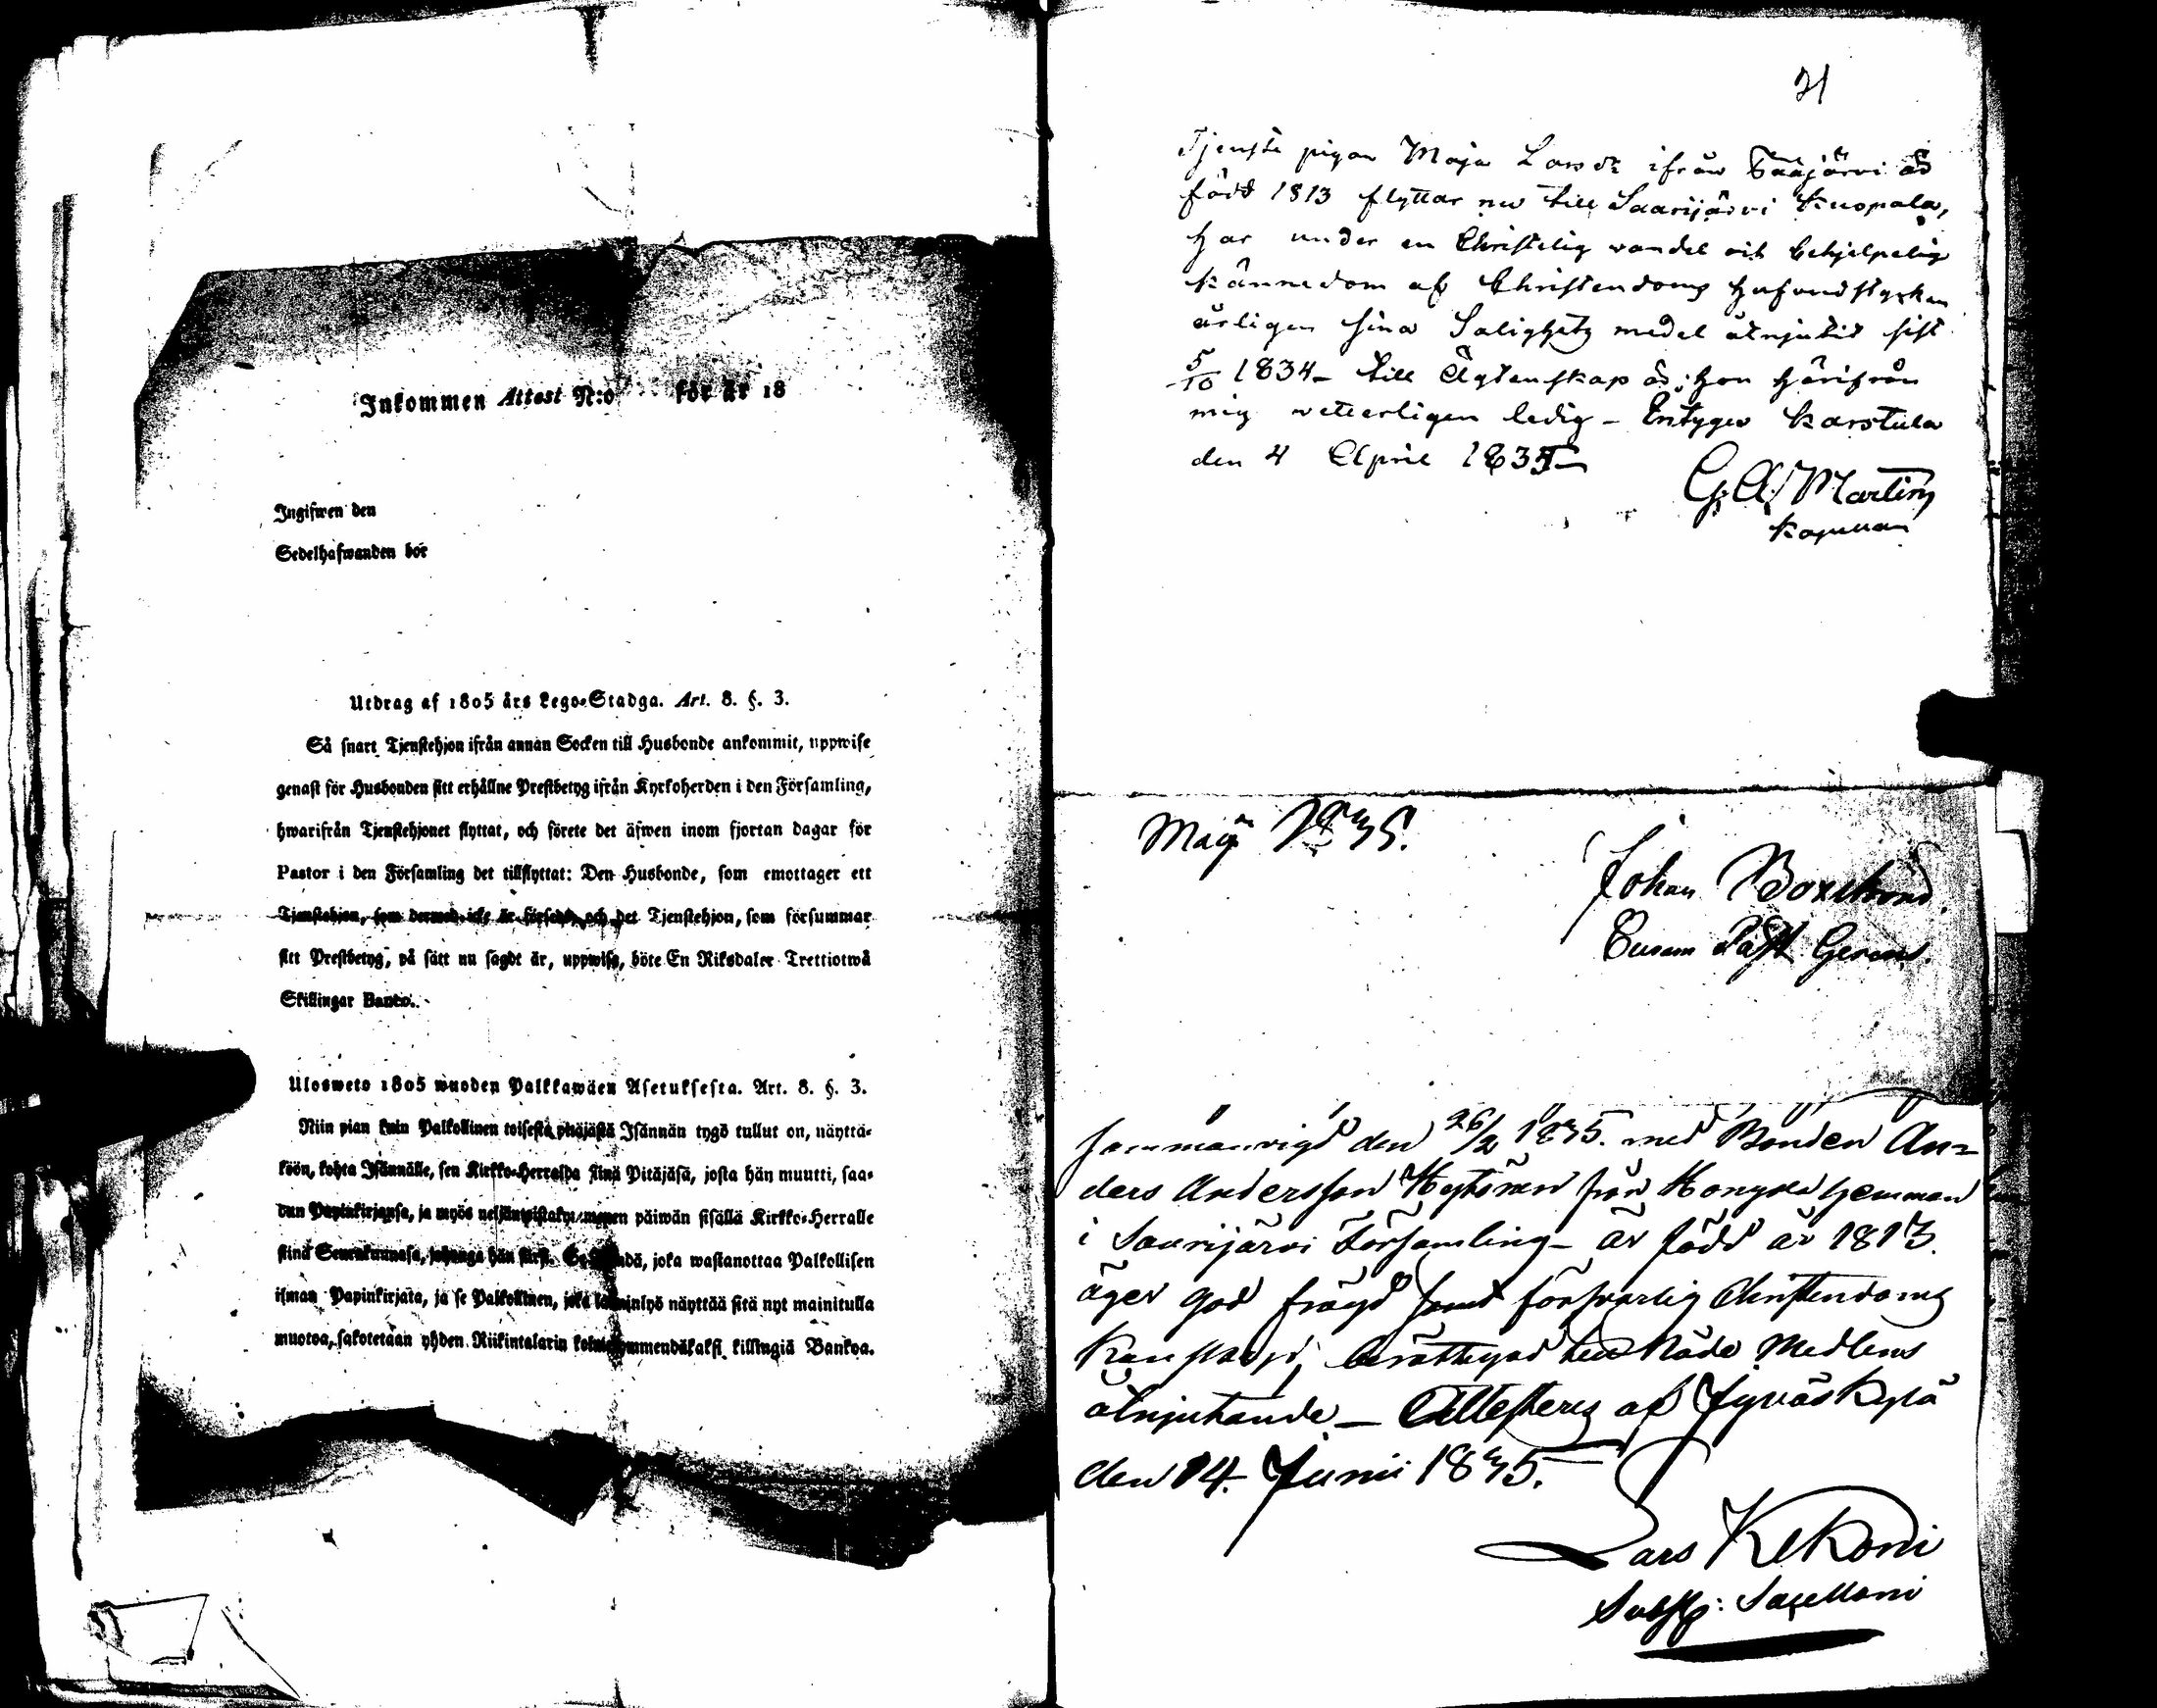 Inkommen Attest N:o för år 18
Ingifwen den
Sedelhafwanden bör
Utdrag af 1805 års Lego-Stadga. Art. 8. §. 3.
Så snart Tjenstehjon ifrån annan Socken till Husbonde ankommit, uppwise
genast för Husbonden sitt erhållne Prestbetyg ifrån Kyrkoherden i den Församling,
hwarifrån Tjenstehjonet flyttat, och förete det äfwen inom fjortan dagar för
Pastor i den Församling det tillflyttat: Den Husbonde, som emottager ett
Tjenstehjon, som dermed icke är försedt, och det Tjenstehjon, som försummar
sitt Prestbetyg, på sätt nu sagdt är, uppwisa, böte En Riksdaler Trettiotwå
Skillingar Banco.
Ulosweto 1805 wuoden Palkkawäen Asetuksesta. Art. 8. §. 3.
Niin pian kuin Palkollinen toisesta pitäjästä Isännän tygö tullut on, näyttä-
köön, kohta Isännälle, sen Kirkko-Herralda siinä Pitäjäsä, josta hän muutti, saa-
dun Papinkirjansa, ja myös neljäntoistakymmenen päiwän sisällä Kirkko-Herralle
siinä Seurakunnasa, johonga hän siirsi. Se Isändä, joka wastanottaa Palkollisen
ilman Papinkirjata, ja se Palkollinen, joka laiminlyö näyttää sitä nyt mainitulla
muotoa, sakotetaan yhden Riikintalarin kolmekymmendäkaksi killingiä Bankoa.
21
Tjenste pigan Maja Lassdr ifrån Vaajärvi är
född 1813 flyttar nu till Saarijärvi Kuopala,
har under en Christelig vandel och behjelpelig
kännedom af Christendoms hufvudstycken
årligen sina Salighets medel åtnjutit sist
5/10 1834 – till Ägtenskap är hon härifrån
mig vetterligen ledig – Intygar Karstula
den 4 April 1835 –
G. A. Martin
Kapellan
Maji 1835.
Johan
Past.
Sammanvigd den 26/2 1835. med Bonden An=
ders Andersson Hytönen från hemman
i Saarijärvi Församling – är född år 1813.
äger god frägd samt försvarlig Christendoms
kunskap, berättigad till Nåde Medlens
åtnjutande – Attesteras af Jyväskylä
den 14. Junii 1835.
Lars Kekoni
Subst: Sacellani